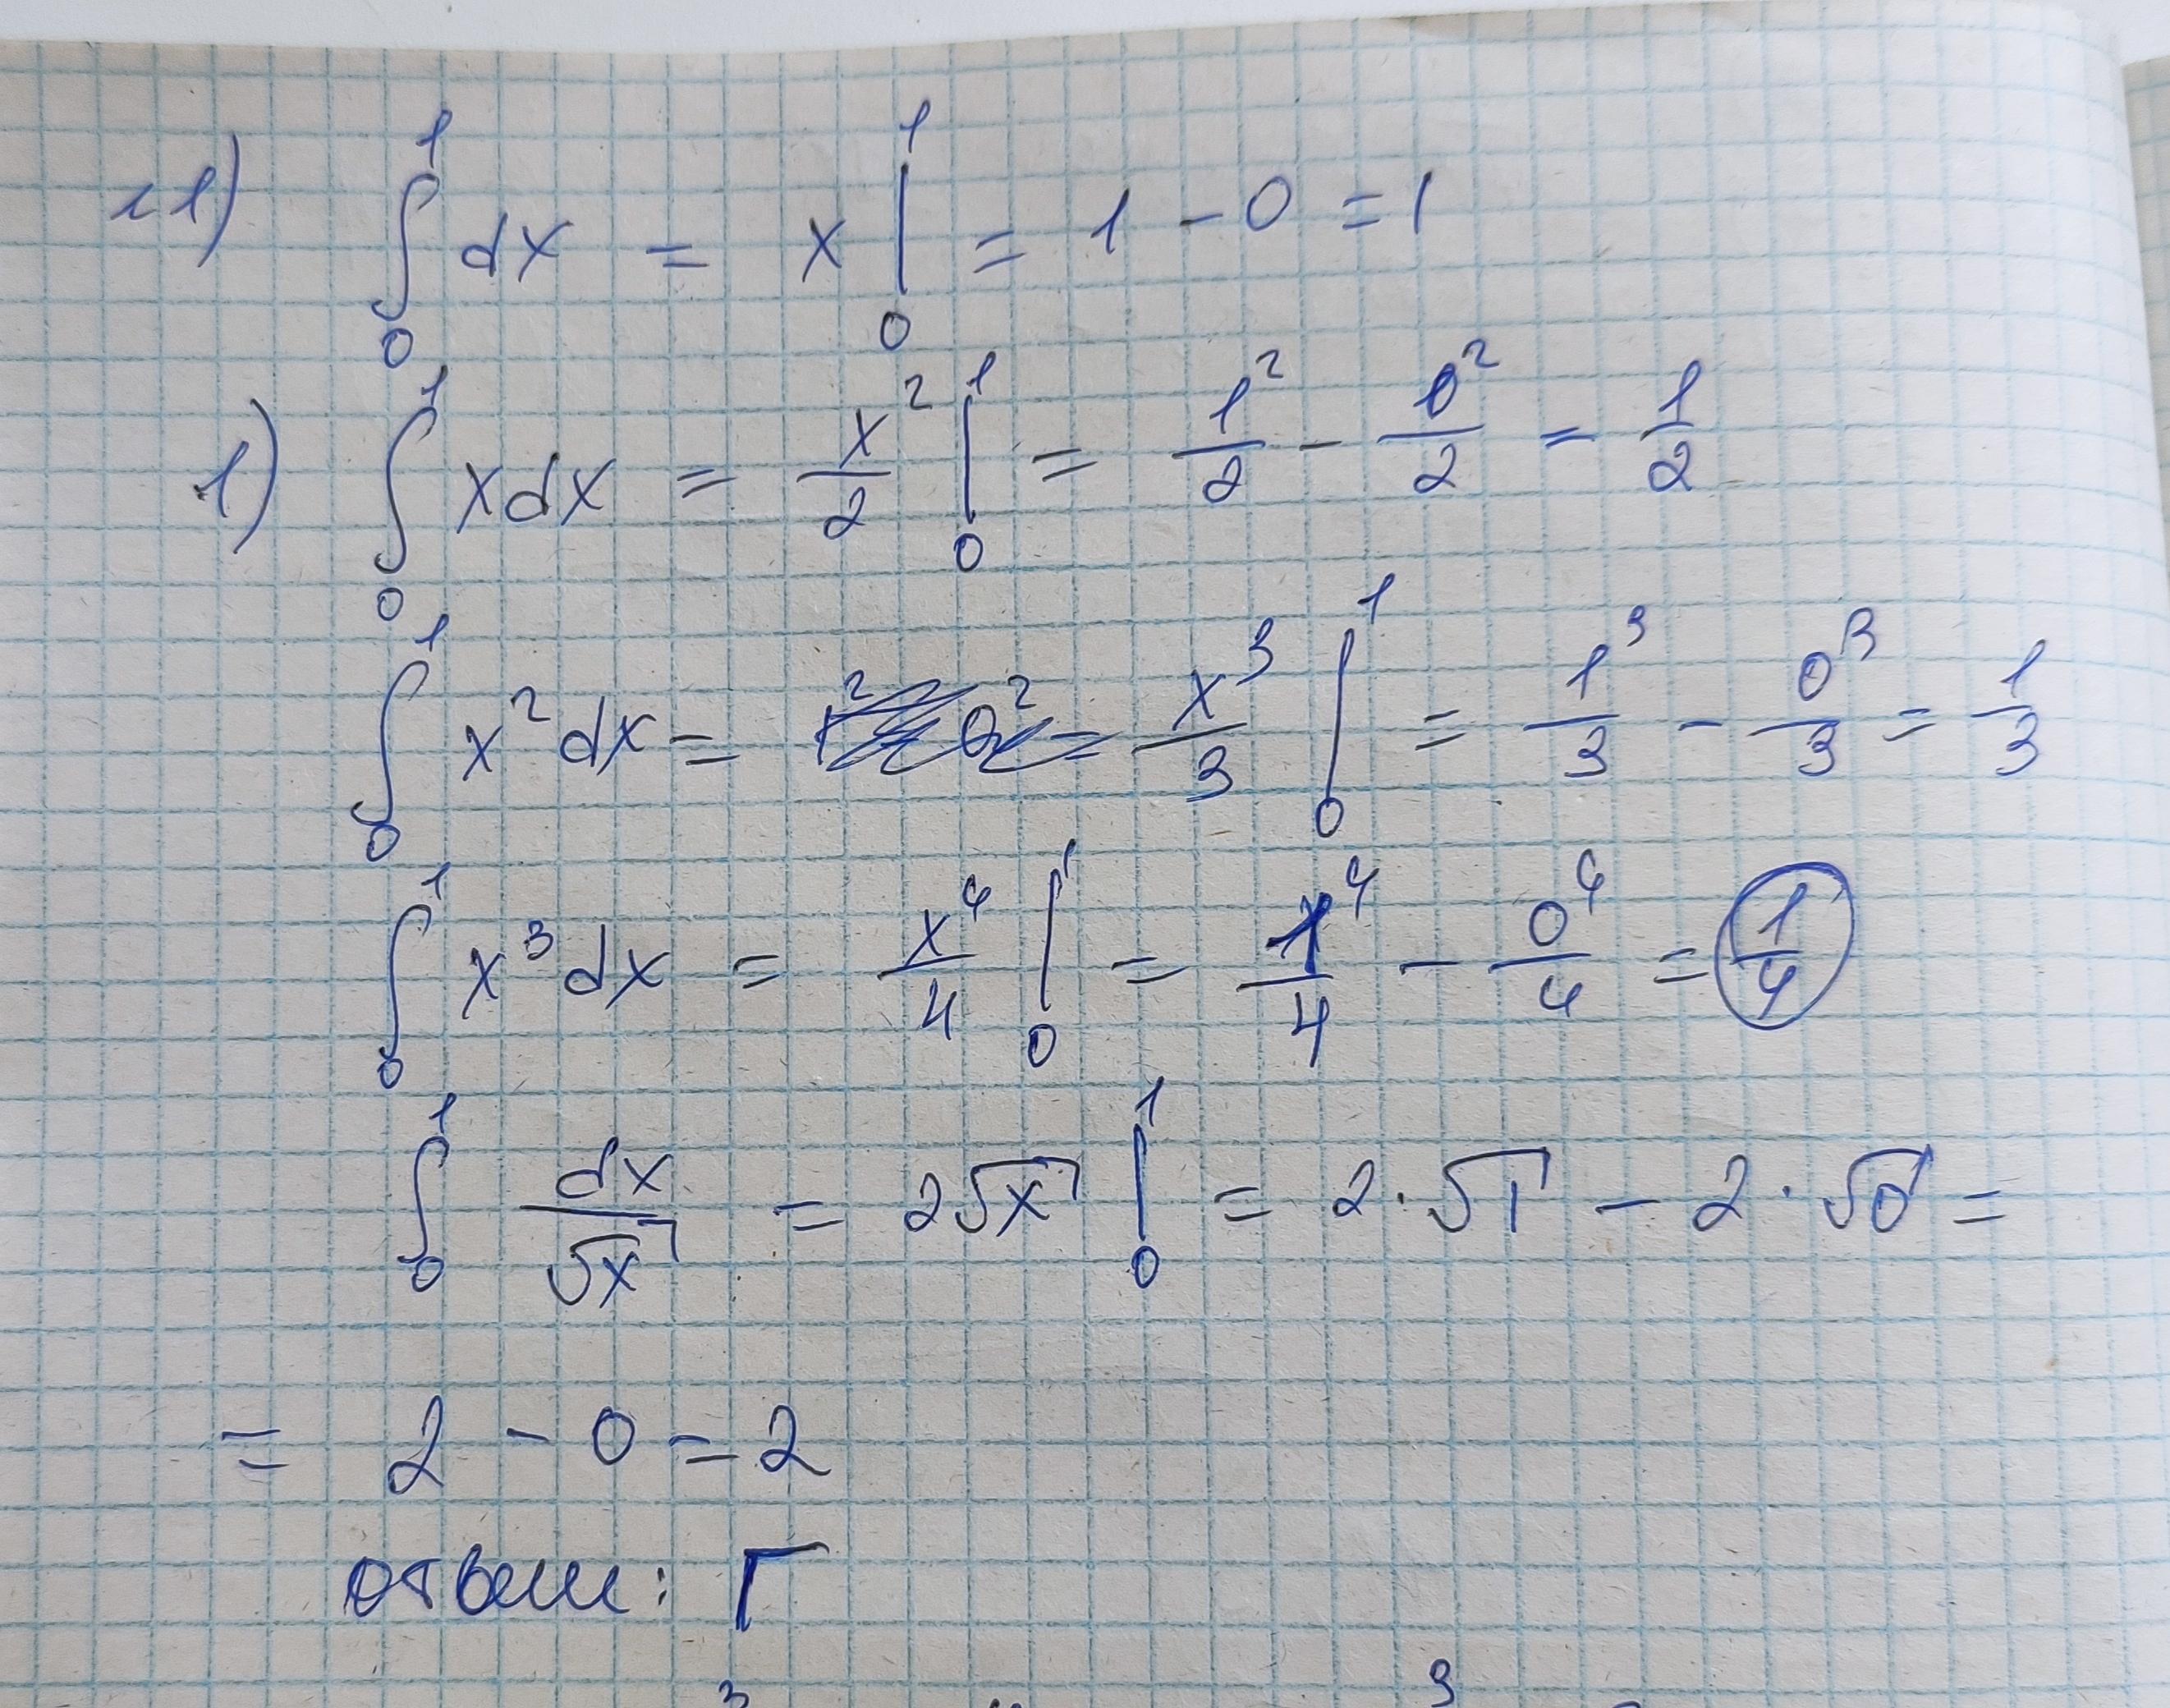 11) ∫₀¹ dx = x |₀¹ = 1 - 0 = 1
1) ∫₀¹ xdx = x²/2 |₀¹ = 1²/2 - 0²/2 = 1/2
∫₀¹ x² dx = x³/3 |₀¹ = 1³/3 - 0³/3 = 1/3
∫₀¹ x³ dx = x⁴/4 |₀¹ = 1⁴/4 - 0⁴/4 = 1/4
∫₀¹ dx/√x = 2√x |₀¹ = 2·√1 - 2·√0 =
= 2 - 0 = 2
ответ: Г